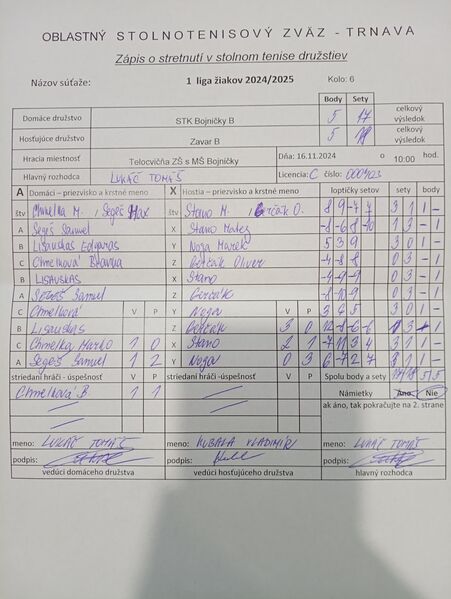 OBLASTNÝ STOLNOTENISOVÝ ZVÄZ - TRNAVA
Zápis o stretnutí v stolnom tenise družstiev
Názov súťaže: 1 liga žiakov 2024/2025 Kolo: 6
Body Sety
Domáce družstvo STK Bojničky B 5 17 celkový výsledok
Hosťujúce družstvo Zavar B 5 celkový výsledok
Hracia miestnosť Telocvičňa ZŠ s MŠ Bojničky Dňa: 16.11.2024 o 10:00 hod.
Hlavný rozhodca LUKÁČ TOMÁŠ Licencia: C číslo:
A Domáci – priezvisko a krstné meno X Hostia – priezvisko a krstné meno loptičky setov sety body
štv Chmelka M., Segeš Max štv Stano M., Gerčák O. 8 9 -4 7 3 1 1 -
A Segeš Samuel X Stano Matej -8 -6 8 -10 1 3 - 1
B Lisauskas Edgaras Y Noga Marek 5 3 9 3 0 1 -
C Chmelková Z Gerčák Oliver -4 -8 -8 0 3 - 1
B LISAUSKAS X Stano -4 -9 -9 0 3 - 1
A SEGEŠ Samuel Z Gerčák -8 -10 -9 0 3 - 1
C Chmelková V P Y Noga V P 3 6 5 3 0 1 -
B Lisauskas Z Gerčák 3 0 12 -8 -6 -6 1 3 - 1
C Chmelka Marko 1 0 X Stano 2 1 -7 11 3 4 3 1 1 -
A Segeš Samuel 1 2 Y Noga 0 3 6 -7 2 7 3 1 1 -
striedaní hráči - úspešnosť V P striedaní hráči - úspešnosť V P Spolu body a sety 5 5
Chmelková B 1 1 Námietky Áno Nie
ak áno, tak pokračujte na 2. strane
meno: LUKÁČ TOMÁŠ meno: KUBALA VLADIMÍR meno: LUKÁČ TOMÁŠ
podpis: podpis: podpis:
vedúci domáceho družstva vedúci hosťujúceho družstva hlavný rozhodca